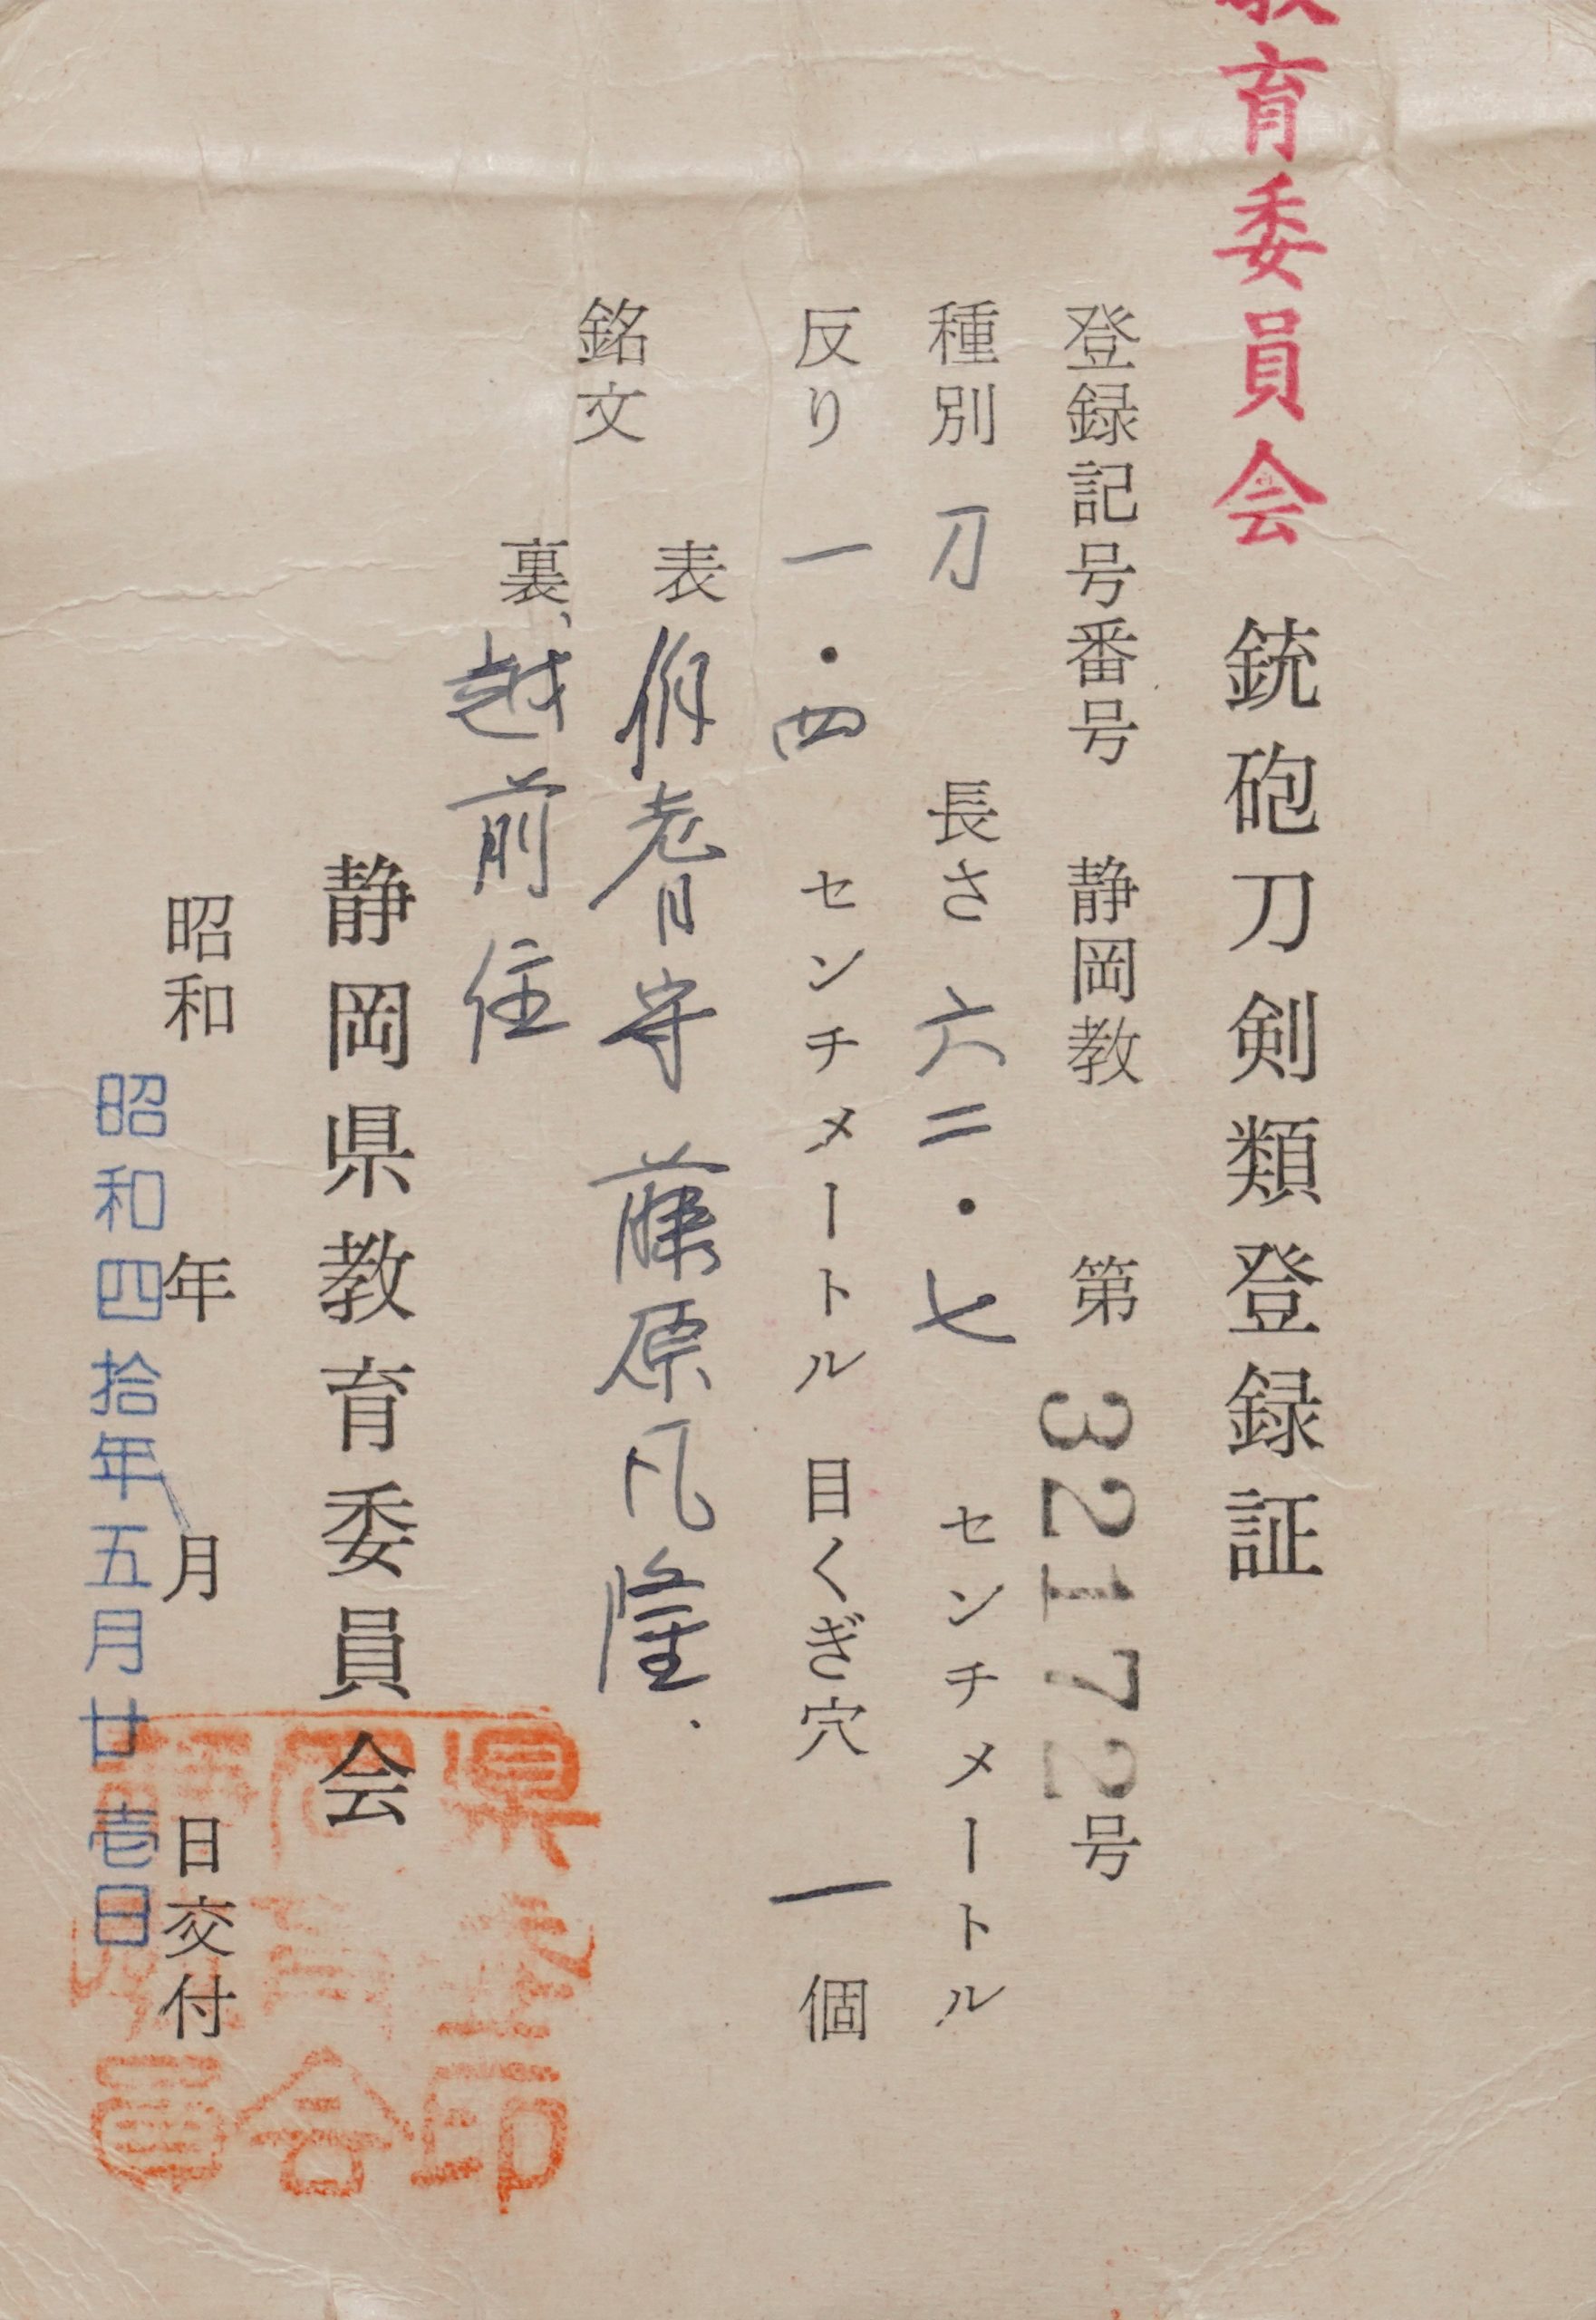 教育委員会 銃砲刀剣類登録証
登録記号番号 静岡教 第 32172 号
種別 刀 長さ 六二・七 センチメートル
反り 一・四 センチメートル 目くぎ穴 一 個
銘文
表 伯耆守 藤原汎隆
裏、越前住
静岡県教育委員会
昭和 年 月 日交付
昭和四拾年五月廿壱日